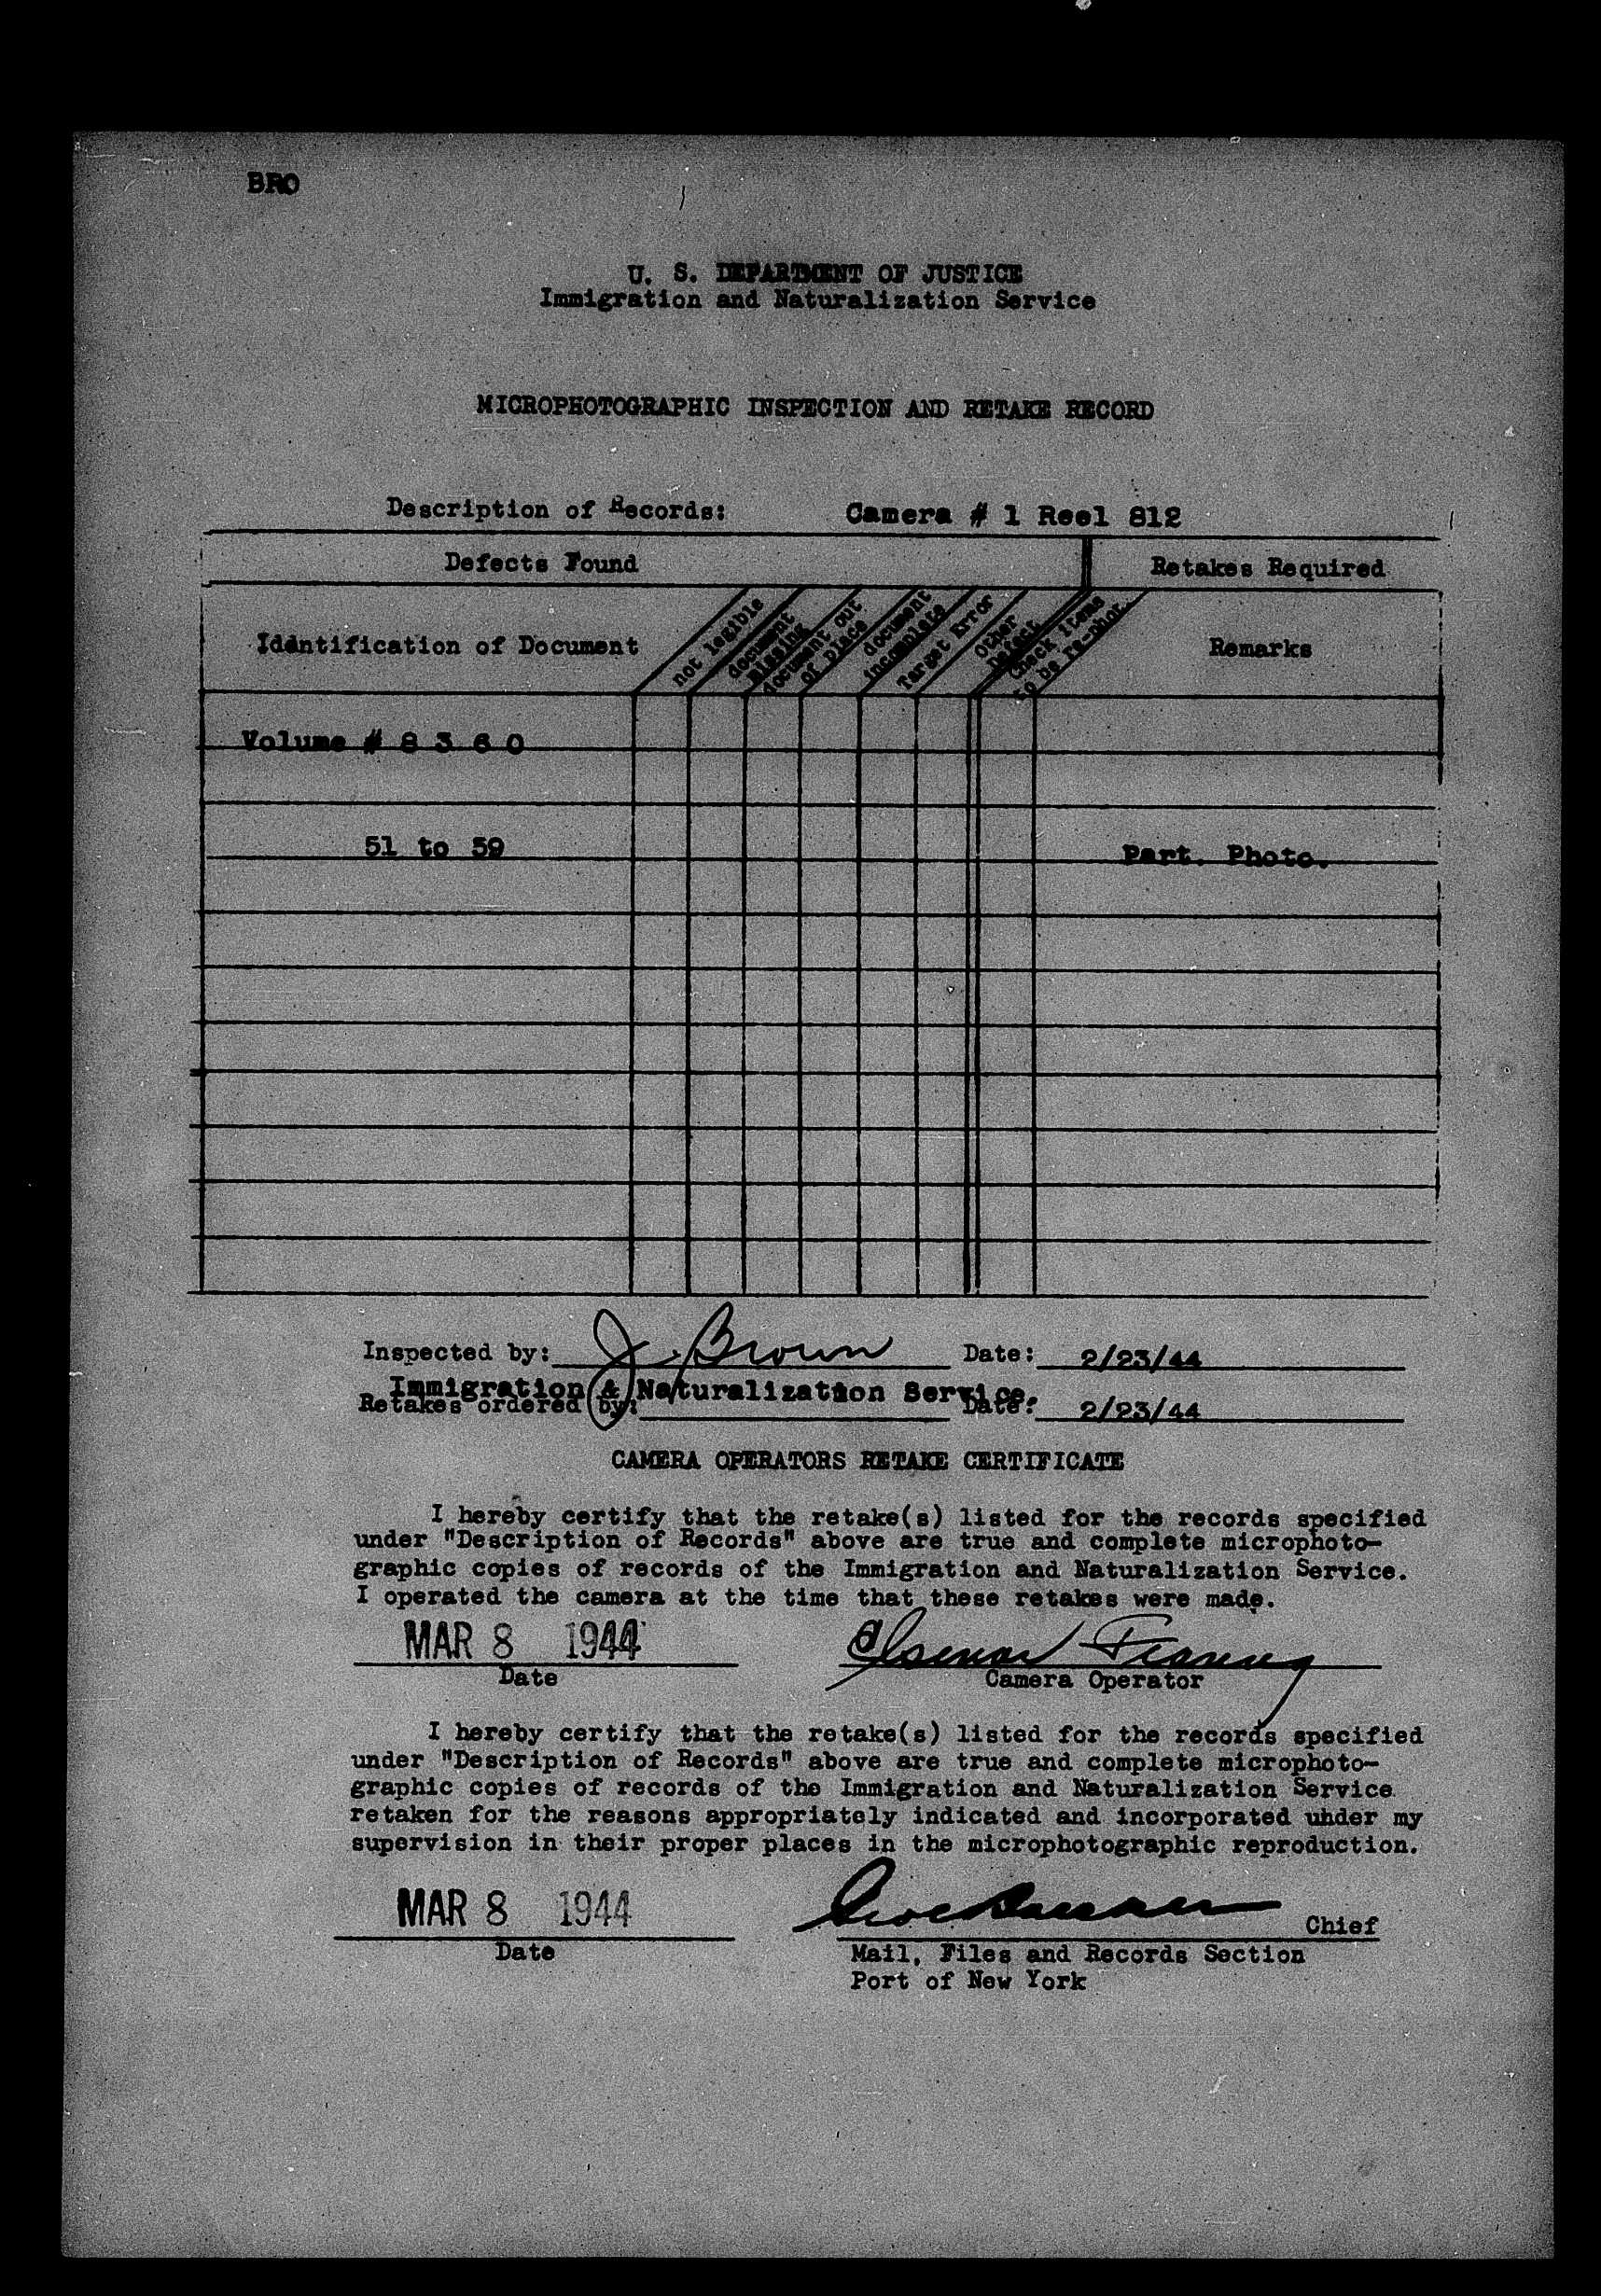 BRO
U. S. DEPARTMENT OF JUSTICE
Immigration and Naturalization Service
MICROPHOTOGRAPHIC INSPECTION AND RETAKE RECORD
Description of Records: Camera # 1 Reel 812
Defects Found Retakes Required
Identification of Document
not legible
document missing
document out of place
document incomplete
Target Error
Other Defect
Check items to be re-phot.
Remarks
Volume # 8 3 6 0
51 to 59 Part. Photo.
Inspected by: J. Brown Date: 2/23/44
Immigration & Naturalization Service.
Retakes ordered by: Date: 2/23/44
CAMERA OPERATORS RETAKE CERTIFICATE
I hereby certify that the retake(s) listed for the records specified
under "Description of Records" above are true and complete microphoto-
graphic copies of records of the Immigration and Naturalization Service.
I operated the camera at the time that these retakes were made.
MAR 8 1944
Date Camera Operator
I hereby certify that the retake(s) listed for the records specified
under "Description of Records" above are true and complete microphoto-
graphic copies of records of the Immigration and Naturalization Service
retaken for the reasons appropriately indicated and incorporated under my
supervision in their proper places in the microphotographic reproduction.
MAR 8 1944 Chief
Date Mail, Files and Records Section
Port of New York